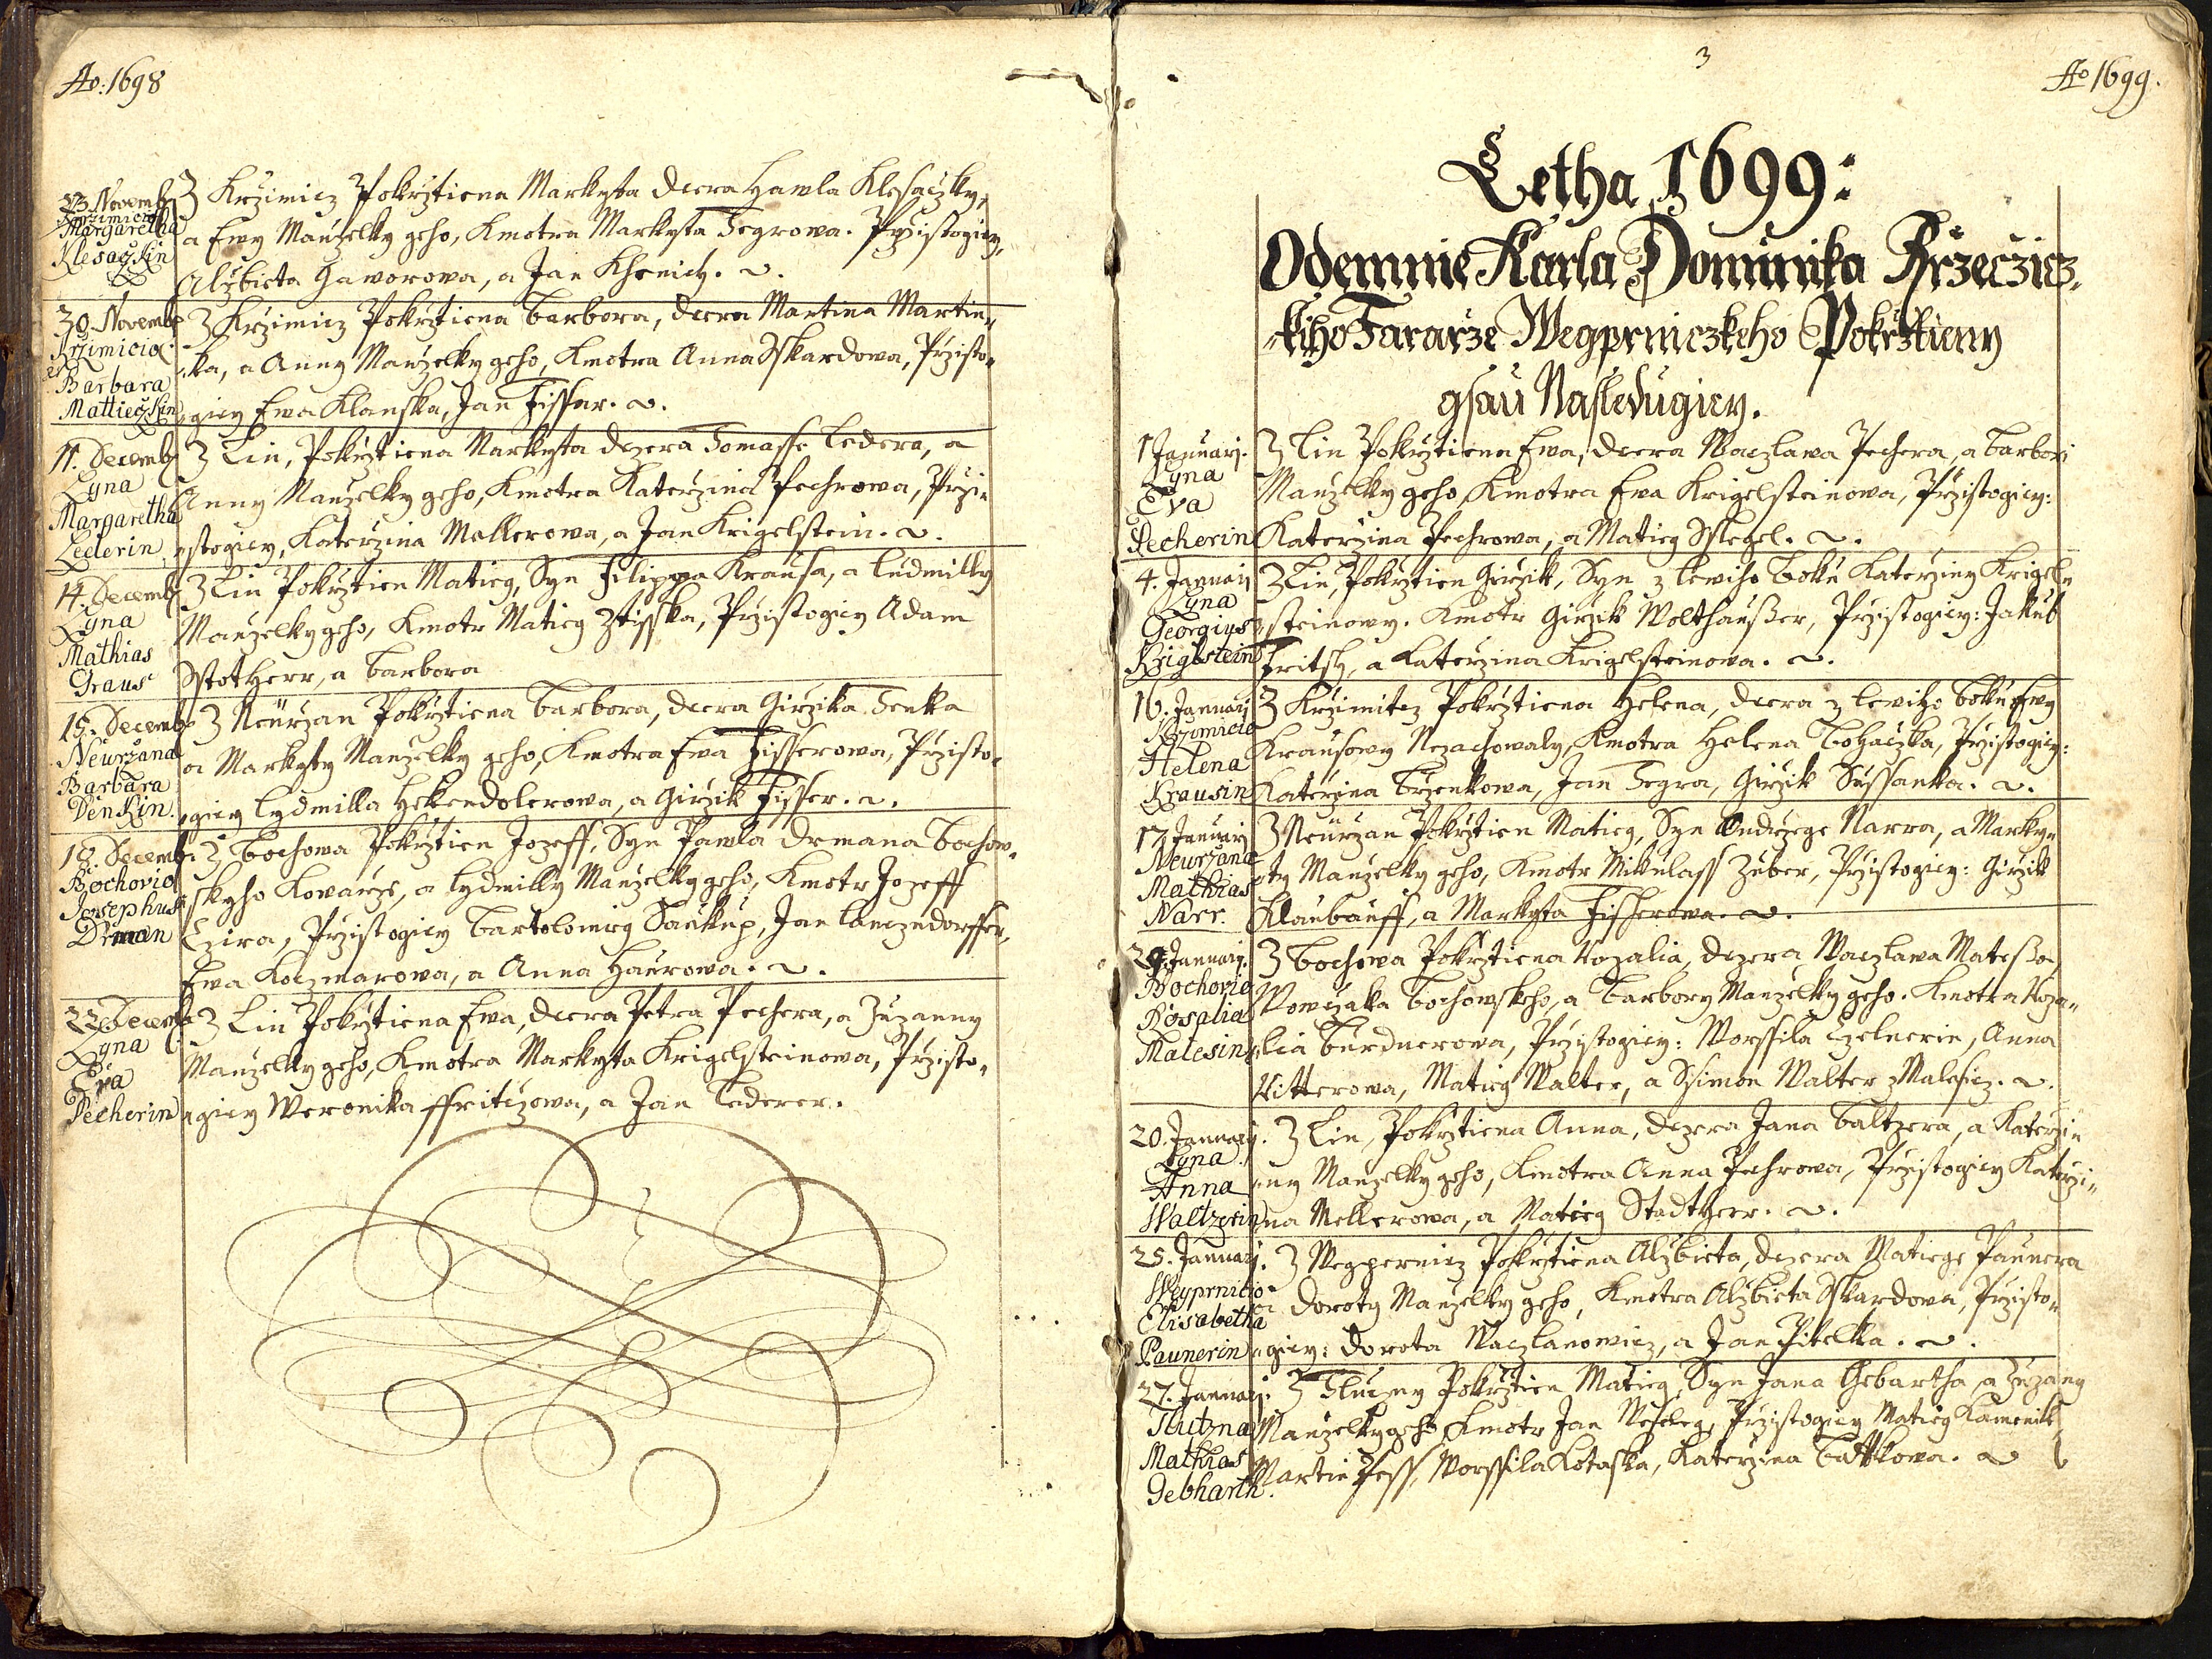 Ao: 1698
23. Novemb
Krzimicio
Margaretha
Klesaczkin
Z Krzimicz Pokrztiena Markyta dcera Hawla Klesaczky,
a Ewy Manzelky geho, Kmotra Markyta Tegrowa. Przistogicy,
Alzbieta Gaworowa, a Jan
30. Novemb
Krzimicio
Barbara
Mattieczkin
Z Krzimicz Pokrztiena Barbora, dcera Martina Martin„
„ka, a Anny Manzelky geho, Kmotra Anna Sskardowa, Przisto„
„gicy Ewa Klanska, Jan Fisser.
11. Decemb
Lyna
Margaretha
Lederin
Z Lin, Pokrztiena Markyta dczera Tomasse Ledera, a
Anny Manzelky geho, Kmotra Katerzina Pechrowa, Przi„
„stogicy, Katerzina Mallerowa, a Jan Krigelstein.
14. Decemb
Lyna
Mathias
Graus
Z Lin Pokrztien Matieg, Syn Filippa Krausa, a Ludmilly
Manzelky geho, Kmotr Matieg Ztisska, Przistogicy Adam
Sstotherr, a Barbora
15. Decemb
Neurzana
Barbara
Denkin.
Z Neurzan Pokrztiena Barbora, dcera Girzika Tenka
a Markyty Manzelky geho, Kmotra Ewa Fisserowa, Przisto„
„gicy Lydmilla Hekendolerowa, a Girzik Fisser.
18. Decemb
Bochovio
Josephus
Drman
Z Bochowa Pokrztien Jozeff, Syn Pawla Drmana Bochow„
„skyho Kowarze, a Lydmilly Manzelky geho, Kmotr Jozeff
Czira, Przistogicy Bartolomieg Saukup, Jan Lanczndorffer,
Ewa Koczmarowa, a Anna Haurowa.
22. Decemb
Lyna
Eva
Pecherin
Z Lin Pokrztiena Ewa, dcera Petra Pechera, a Zuzanny
Manzelky geho, Kmotra Markyta Krigelsteinowa, Przisto„
„gicy Weronika ffritczowa, a Jan Lederer.
3
Ao 1699.
Letha 1699:
Odemnie Karla Dominika Krzeczicz„
„kiho Fararze Wegprniczkeho Pokrztieny
gsau Nasledugicy.
1 Januarj.
Lyna
Eva
Pecherin
Z Lin Pokrztiena Ewa, dcera Waczlawa Pechera, a Barbori
Manzelky geho, Kmotra Ewa Krigelsteinowa, Przistogicy:
Katerzina Pechrowa, a Matieg Sslegel.
4. Januarj
Lyna
Georgius
Kriglstein
Z Lin, Pokrztien Girzik, Syn z lewiho boku Katerziny Krigel„
„steinowy. Kmotr Girzik Wolthaußer, Przistogicy: Jakub
Fritsch, a Katerzina Krigelsteinowa.
16. Januarj
Krzimicio
Helena
Krausin
Z Krzimitcz Pokrztiena Helena, dcera z lewiho boku Ewy
Krausowy Nezachowaly, Kmotra Helena Bohaczka, Przistogicy:
Katerzina Brzenkowa, Jan Tegra, Girzik Sussanka.
17 Januarj
Neurzana
Mathias
Narr.
Z Neurzan Pokrztien Matieg, Syn Ondrzege Narra, a Marky„
„ty Manzelky geho, Kmotr Mikulass Zuber, Przistogicy: Girzik
Klaubauff, a Markyta Fisherowa.
Januarj.
Bochovio
Rosalia
Malesin
Z Bochowa Pokrztiena Rozalia, dczera Waczlawa Mateßa
Bochowskeho, a Barbory Manzelky geho. Kmotra Roza„
„lia Burdnerowa, Przistogicy: Worssila Czelnerin, Anna
Ritterowa, Matieg Walter, a Ssimon Walter z Malesicz.
20. Januarj.
Lyna
Anna
Waltzerin
Z Lin, Pokrztiena Anna, dczera Jana Baltzera, a Katerzi„
„ny Manzelky geho, Kmotra Anna Pechrowa, Przistogicy Katerzi„
„na Mellerowa, a Matieg Stadtherr.
25. Januarj.
Weyprnicio
Elisabetha
Paunerin
Z Wegpernicz Pokrztiena Alzbieta, dczera Matiege Paunera
a Doroty Manzelky geho, Kmotra Alzbieta Sskardowa, Przisto„
„gicy: Dorota Waczlanowicz, a Jan Pitelka.
27. Januarj.
Tlutzna
Mathias
Gebharth.
Z Tluczny Pokrztien Matieg, Syn Jana Gebartha, a Zuzany
Manzelky geho Kmotr Jan Weseleg, Przistogicy Matieg Kamenik,
Martin Pess, Worssila Kotaska, Katerzina Battkowa.